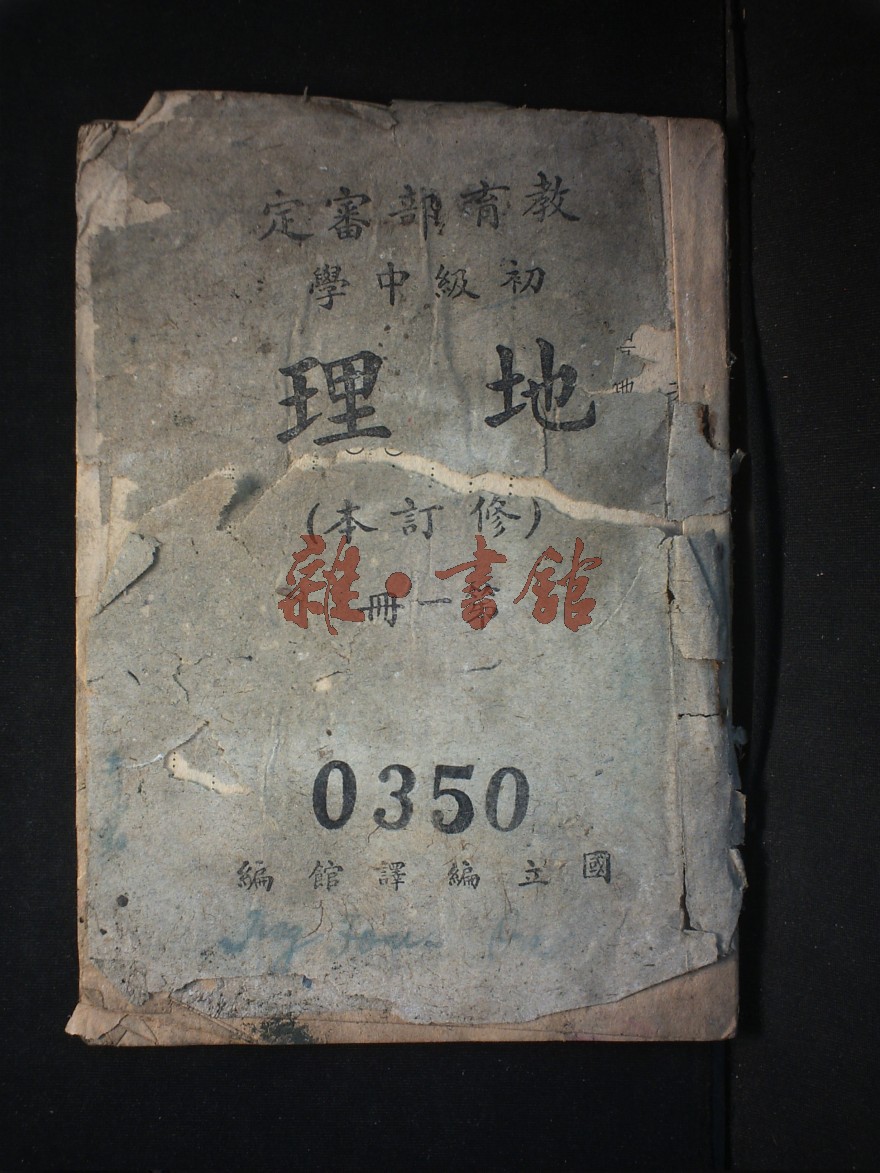 教育部審定
初級中學
地理
(修訂本)
第一冊
雜·書館
0350
國立編譯館編